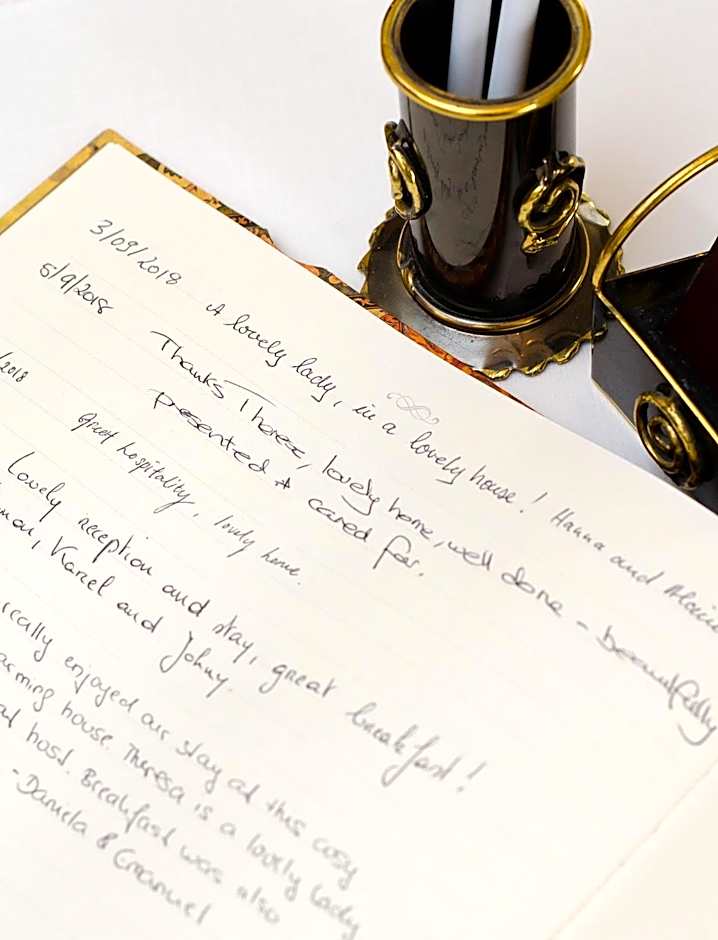 3/09/2018 A lovely lady, in a lovely house! Hanna and
5/9/2018 Thanks Therese, lovely home, well done - beautifully
presented & cared for.
/2018 Great hospitality, lovely home.
Lovely reception and stay, great breakfast!
Karel and Johny.
really enjoyed our stay at this cosy
house. Theresa is a lovely lady
host. Breakfast was also
- Daniela & Emanuel